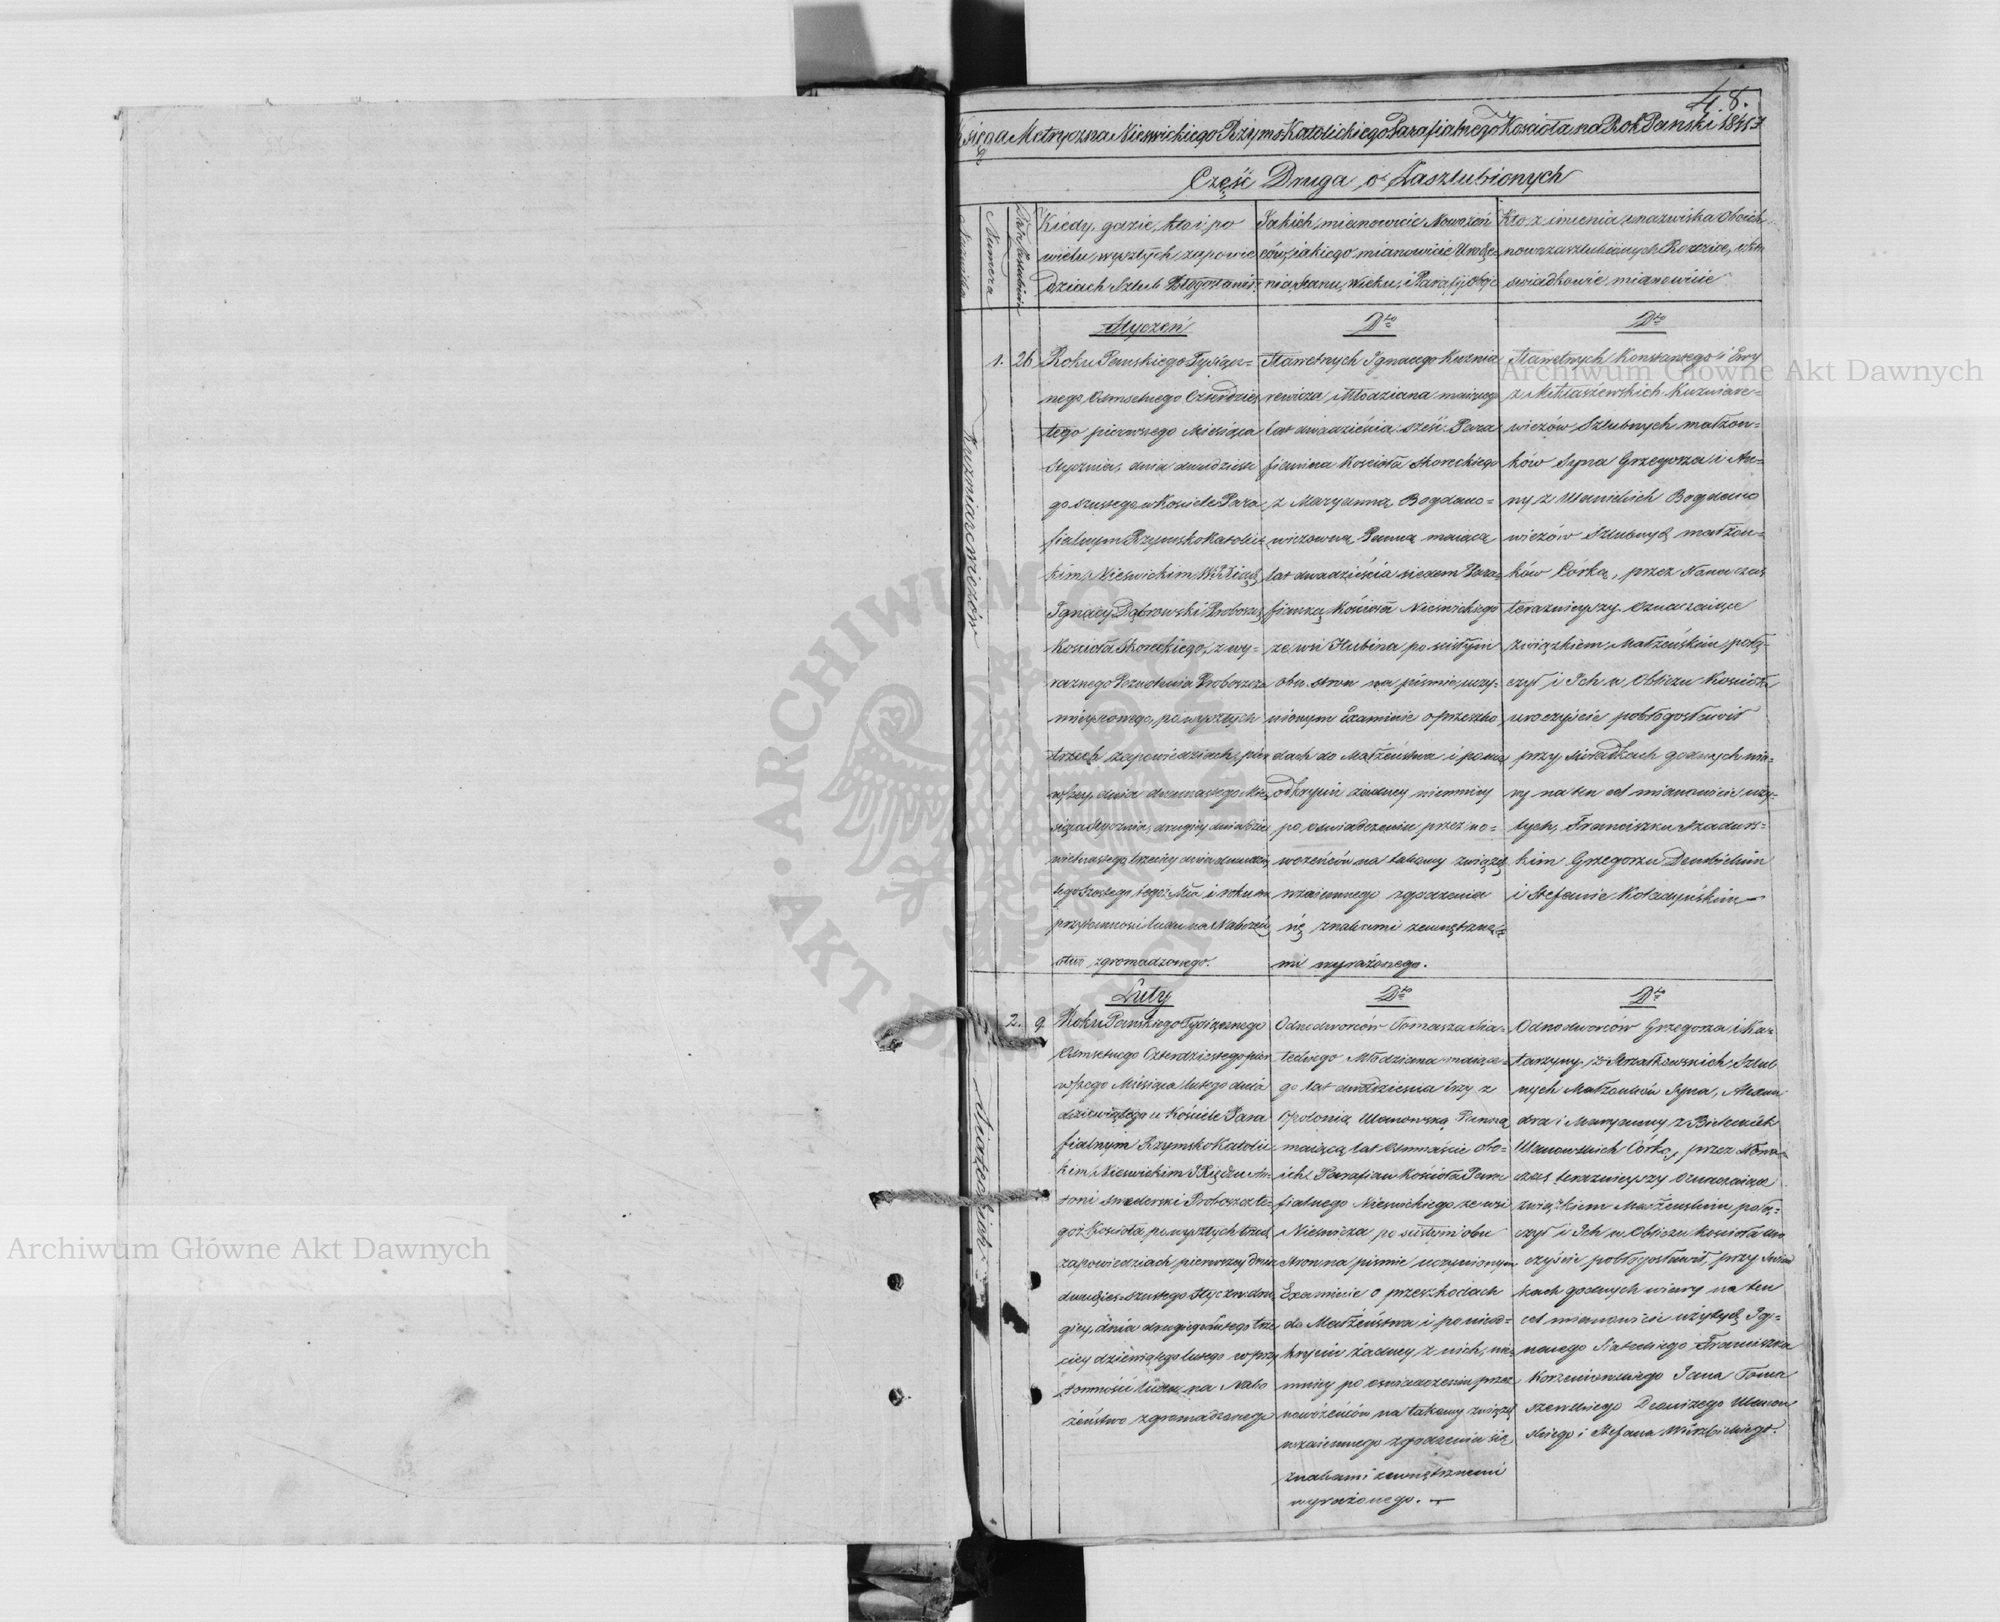 48.
Księga Metryczna Nieswickiego Rzymsko Katolickiego Parafialnego Kościoła na Rok Pański 1841
Część Druga o Zaszlubionych
Nazwiska
Numera
Data Zaślubin
Kiedy, gdzie, kto i po
wielu wyszłych zapowie
dziach Szlub Błogosławił
Jakich mianowicie Nowożeń
ców, jakiego mianowicie Urodze
nia, Stanu, Wieku, i Parafii oboje
Kto z imienia i nazwiska Oboich
nowozaszlubionych Rodzice, i kto
swiadkowie mianowicie
Styczeń
1. 26
Kuzniarewiczów
Roku Pańskiego Tysiącz-
nego Osmsetnego Czterdzies
tego pierwszego Miesiąca
Stycznia, dnia dwudzieste
go szustego w Kościele Para
fialnym Rzymsko Katolic
kim Nieswickim WXiądz
Ignacy Dąbrowski Proboszcz
Kościoła Skoreckiego, z wy-
raznego Pozwolenia Proboszcza
mieyscowego, po wyszłych
trzech zapowiedziach, pier
wszey dnia dwunastego Mie-
siąca Stycznia, drugiey dnia dzie
więtnastego, trzeciey dnia dwudzies
tego szostego tegoż Mca i roku w
przytomności ludu na Nabożeń
stwo zgromadzonego.
Dto
Sławetnych Ignacego Kuznia
rewicza Młodziana maiącego
lat dwadzieścia sześć Para
fianina Kościoła Skoreckiego
z Maryanną Bogdano-
wiczowną Panną maiącą
lat dwadzieścia siedem Para-
fianką Kościoła Nieswickiego
ze wsi Hubina po ścisłym
obu stron na piśmie uczy-
nionym Examinie o przeszko
dach do Małżeństwa i ponie
odkryciu żadney niemniey
po oświadczeniu przez no-
wożeńców na takowy związek
wzaiemnego zgodzenia
się znakami zewnętrzne-
mi wyrażonego.
Dto
Sławetnych Konstantego i Ewy
z Mikłaszewskich Kuzniare-
wiczów Szlubnych małżon-
ków Syna Grzegorza i An-
ny z Usanickich Bogdano
wiczów Szlubnych małżon-
ków Córką, przez słowa czas
teraznieyszy oznaczaiące
związkiem Małżeńskim połą-
czył i Ich w Obliczu Kościoła
uroczyście pobłogosławił
przy Swiadkach godnych wia-
ry na ten cel mianowicie uży-
tych, Franciszku Szadurs-
kim Grzegorzu Dembickim
i Stefanie Koładyńskim
Luty
2. 9
Roku Pańskiego Tysiącznego
Osmsetnego Czterdziestego pier
wszego Miesiąca lutego dnia
dziewiątego w Kościele Para
fialnym Rzymsko Katolic
kim Nieswickim XXiądz An
toni Proboszcz te-
goż Kościoła, po wyszłych trzech
zapowiedziach pierwszey dnia
dwudzies-szustego Styczn. dru
giey, dnia drugiego lutego trze
ciey dziewiątego lutego w przy
tomności ludu na Nabo
żeństwo zgromadzonego
Dto
Odnodworców Tomasza Sia-
teckiego Młodziana maiące-
go lat dwadzieścia trzy z
Apolonią Ulanowską Panną
maiącą lat Osmnaście obo-
ich Parafian Kościoła Para
fialnego Nieswickiego ze wsi
Nieswicza po ścisłym obu
Stron na piśmie uczynionym
Examinie o przeszkodach
do Małżeństwa i po nieod-
kryciu żadney z nich, nie-
mniey po oświadczeniu przez
nowożeńców na takowy związek
wzaiemnego zgodzenia się
znakami zewnętrznemi
wyrażonego.
Dto
Odnodworców Grzegorza i Ka-
tarzyny z Strzałkowskich Szlub
nych Małżonków Syna, Alexan
dra i Maryanny z
Ulanowskich Córką, przez Słowa
czas teraznieyszy oznaczaiące
związkiem Małżeńskim połą-
czył i Ich w Obliczu Kościoła uro
czyście pobłogosławił, przy Swiad
kach godnych wiary na ten
cel mianowicie użytych Ig-
nacego Siateckiego Franciszka
Korzeniowskiego Jana Toma
szewskiego Ulanow
skiego i Stefana Wierzbickiego.
Archiwum Główne Akt Dawnych
Archiwum Główne Akt Dawnych